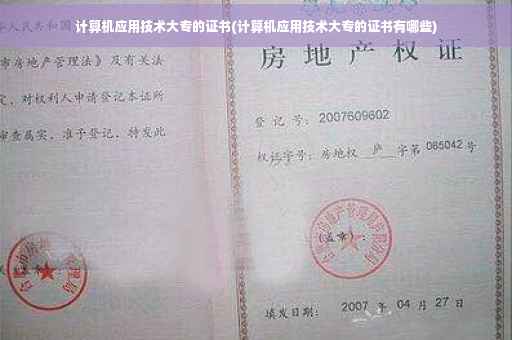 计算机应用技术大专的证书(计算机应用技术大专的证书有哪些)
人民共和国
市房地产管理法》及有关法
定，对权利人申请登记本证所
审查属实，准予登记，特发此
房地产权证
登记号：2007609602
权证字号：房地权 庐 字第 085042 号
(盖章)：
填发日期：2007 年 04 月 27 日